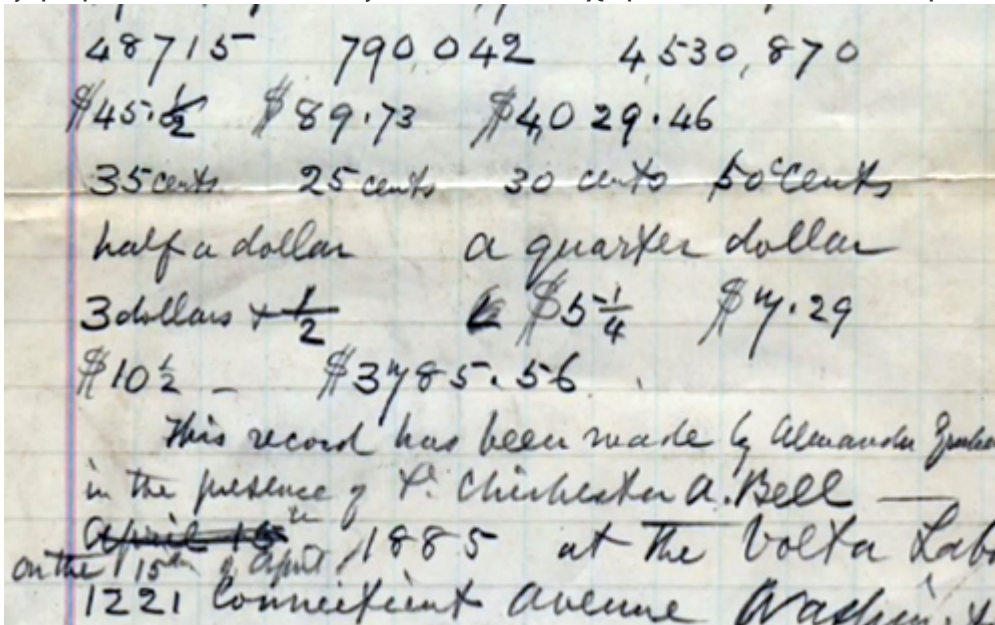 48715 790,042 4,530,870
$45.½ $89.73 $4,029.46
35 cents 25 cents 30 cents 50 cents
half a dollar a quarter dollar
3 dollars + ½ $5¼ $7.29
$10½ – $3785.56.
This record has been made by Alexander Graham
in the presence of Dr. Chichester A. Bell —
April 15th 1885 at the Volta Labo
on the 15th of April
1221 Connecticut Avenue Washin